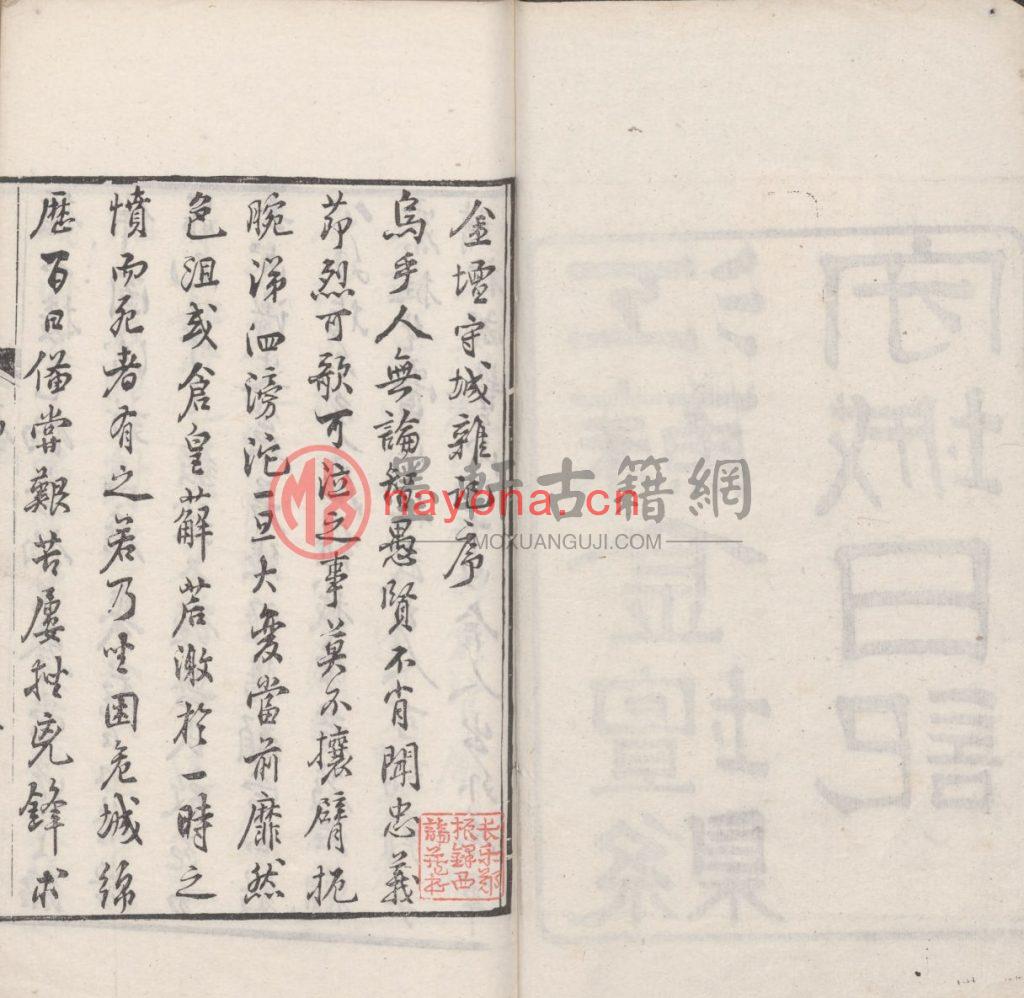 金壇守城雜記序
烏乎人無論智愚賢不肖聞忠義
節烈可歌可泣之事莫不攘臂扼
腕涕泗滂沱一旦大變當前靡然
色沮或倉皇薢茩激於一時之
憤而死者有之若乃坐困危城綿
歷百日備嘗艱苦屢挫兇鋒求
长乐郑
振鐸西
諦藏书
墨軒古籍網
nayona.cn
MOXUANGUJI.COM